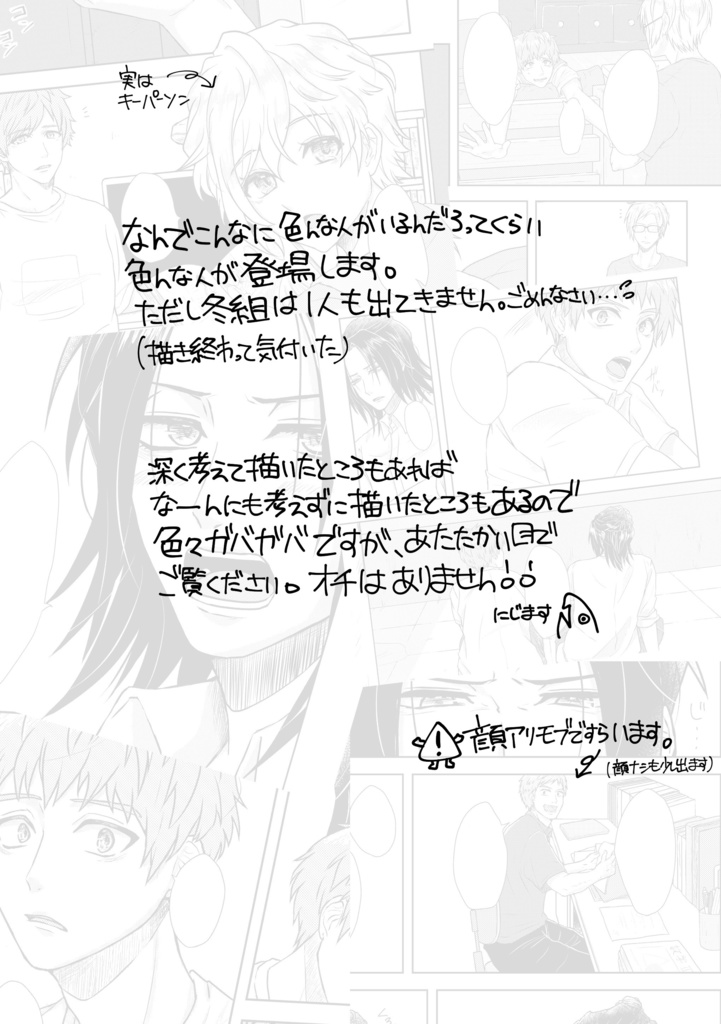 コンコン
実は
キーパーソン
なんでこんなに色んな人がいるんだろってくらい
色んな人が登場します。
ただし冬組は1人も出てきません。ごめんなさい…
(描き終わって気付いた)
深く考えて描いたところもあれば
なーんにも考えずに描いたところもあるので
色々ガバガバですが、あたたかい目で
ご覧ください。オチはありません
にじます
顔アリモブですらいます。
(顔ナシも少し出ます)